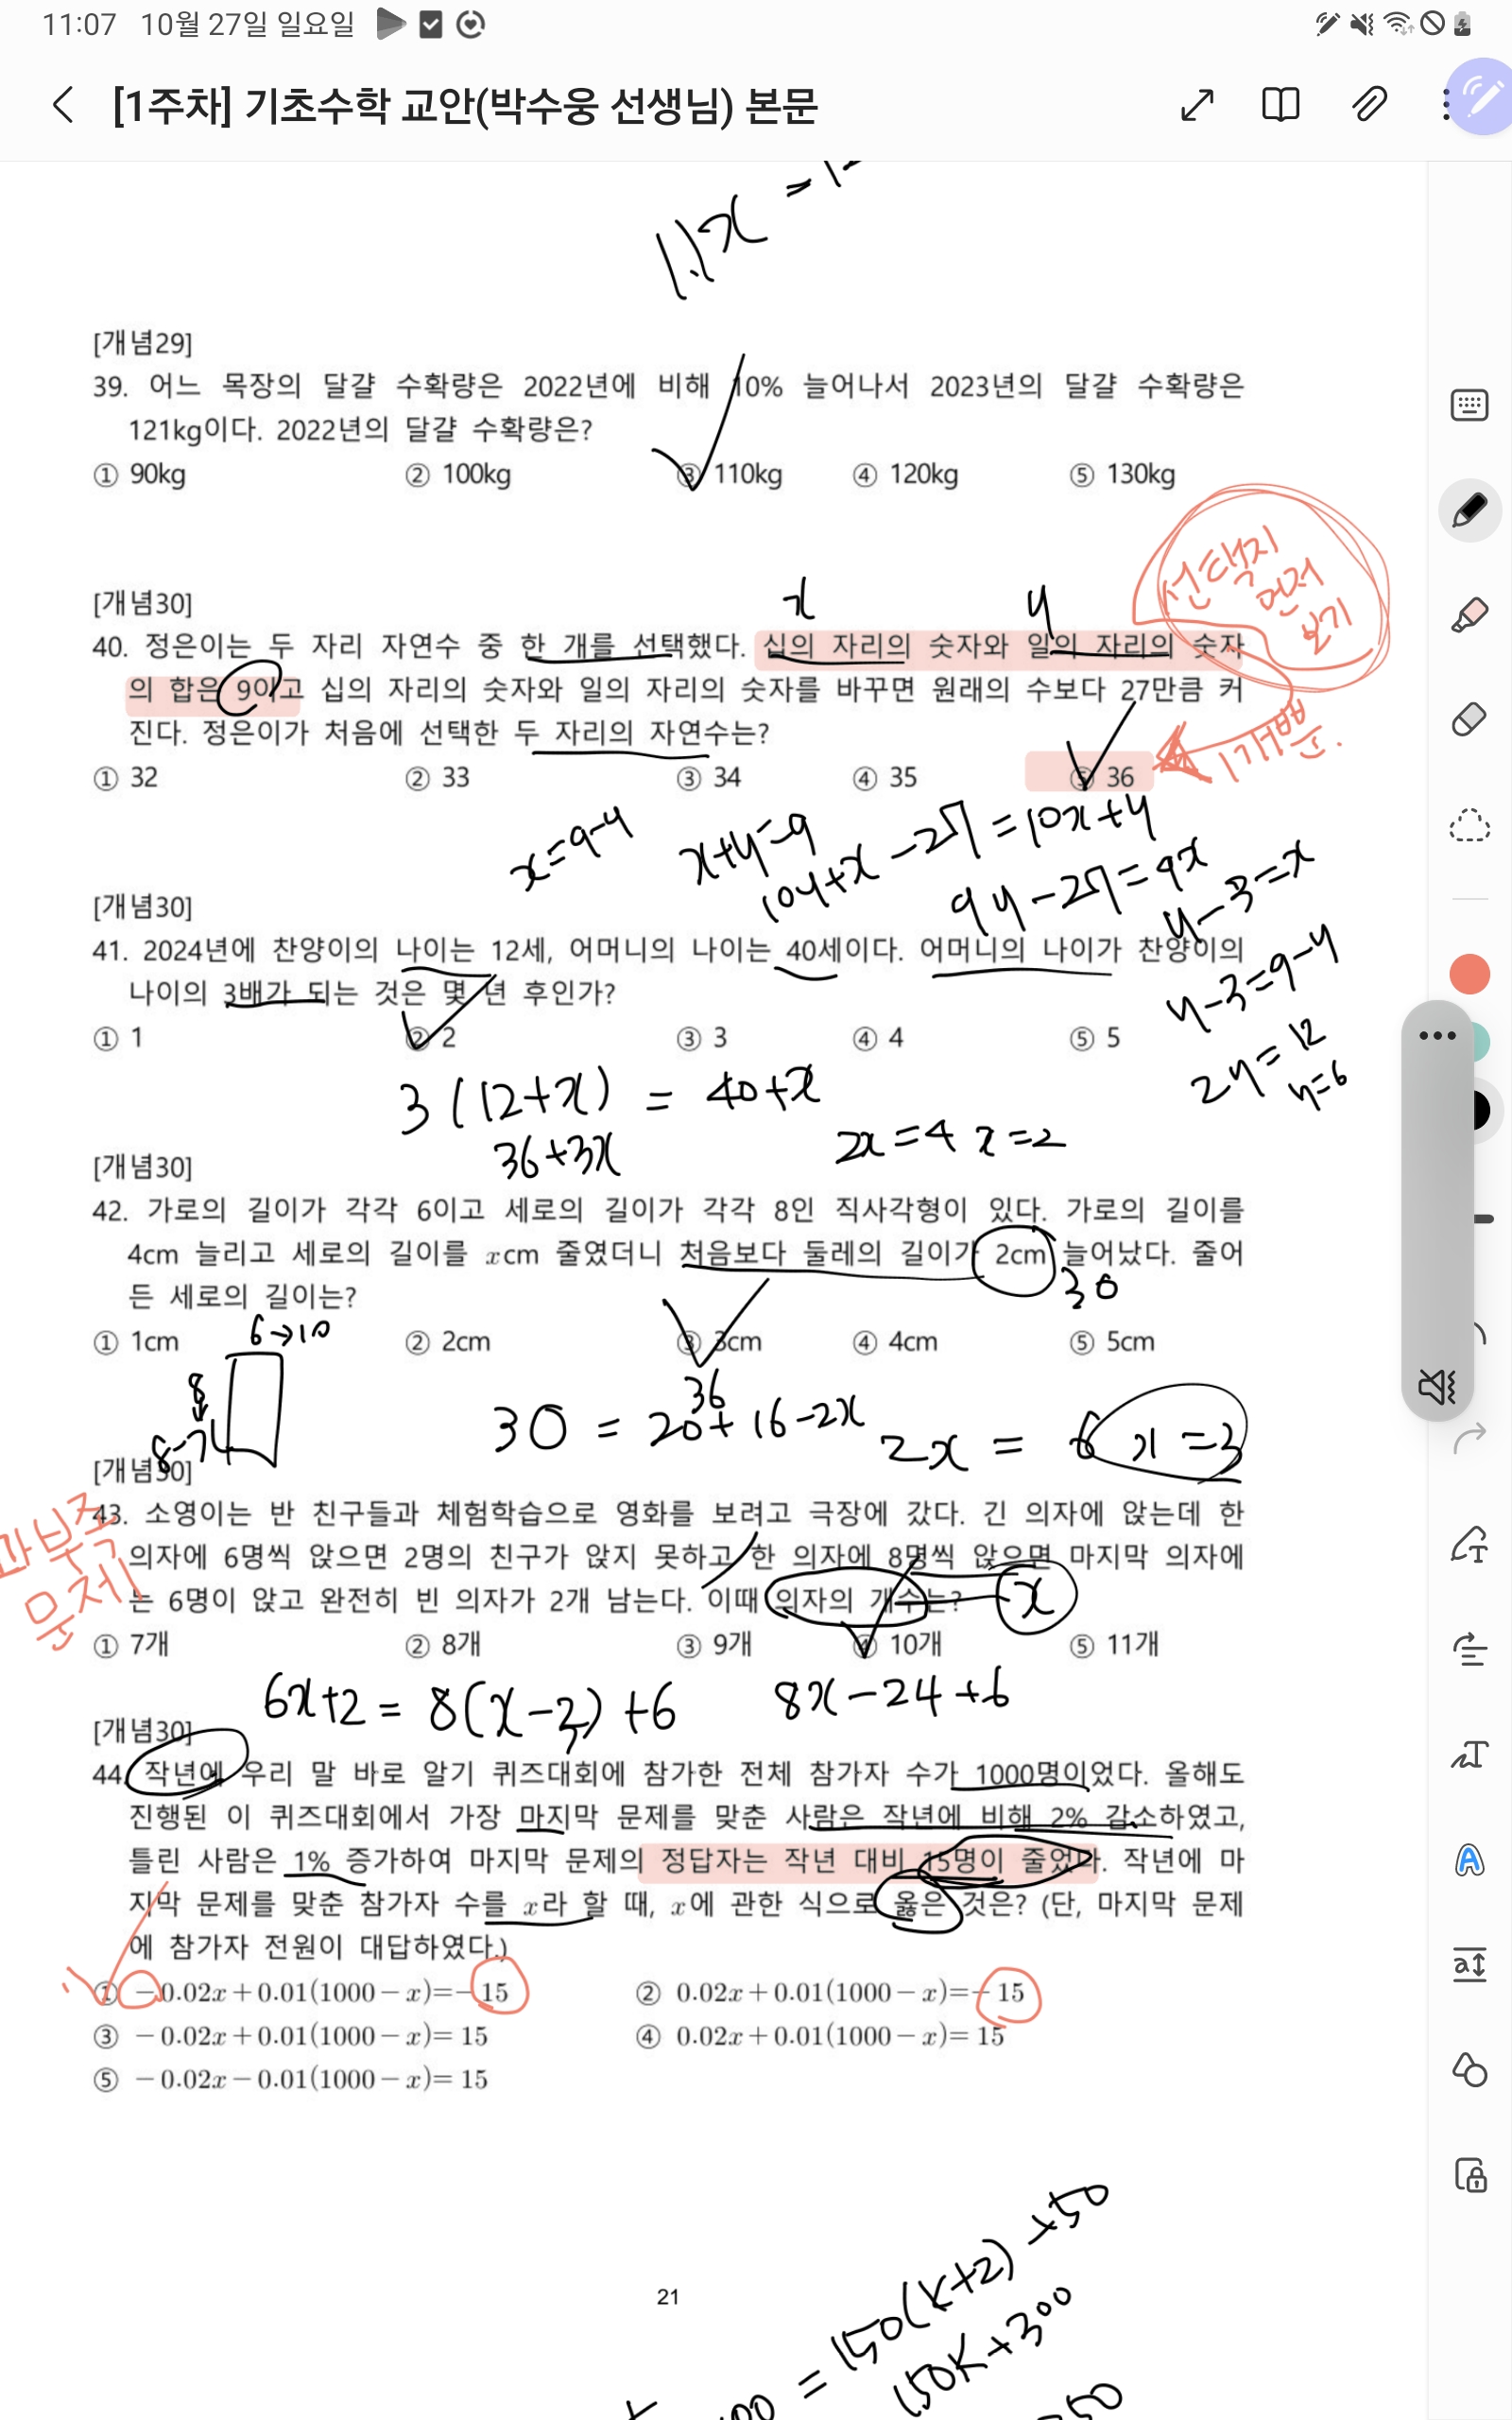 11:07 10월 27일 일요일
[1주차] 기초수학 교안(박수웅 선생님) 본문
1.1x = 1
[개념29]
39. 어느 목장의 달걀 수확량은 2022년에 비해 10% 늘어나서 2023년의 달걀 수확량은
121kg이다. 2022년의 달걀 수확량은?
① 90kg ② 100kg ③ 110kg ④ 120kg ⑤ 130kg
선택지
먼저
보기
[개념30]
x y
40. 정은이는 두 자리 자연수 중 한 개를 선택했다. 십의 자리의 숫자와 일의 자리의 숫자
의 합은 9이고 십의 자리의 숫자와 일의 자리의 숫자를 바꾸면 원래의 수보다 27만큼 커
진다. 정은이가 처음에 선택한 두 자리의 자연수는?
1개뿐.
① 32 ② 33 ③ 34 ④ 35 ⑤ 36
x=9-y
x+y=9
10y+x-27=10x+y
9y-27=9x
y-3=x
y-3=9-y
2y=12
y=6
[개념30]
41. 2024년에 찬양이의 나이는 12세, 어머니의 나이는 40세이다. 어머니의 나이가 찬양이의
나이의 3배가 되는 것은 몇 년 후인가?
① 1 ② 2 ③ 3 ④ 4 ⑤ 5
3(12+x) = 40+x
36+3x
2x=4 x=2
[개념30]
42. 가로의 길이가 각각 6이고 세로의 길이가 각각 8인 직사각형이 있다. 가로의 길이를
4cm 늘리고 세로의 길이를 xcm 줄였더니 처음보다 둘레의 길이가 2cm 늘어났다. 줄어
든 세로의 길이는?
30
① 1cm ② 2cm ③ 3cm ④ 4cm ⑤ 5cm
6→10
8
36
30 = 20+16-2x
2x = 6 x=3
[개념30]
과부족
문제
43. 소영이는 반 친구들과 체험학습으로 영화를 보려고 극장에 갔다. 긴 의자에 앉는데 한
의자에 6명씩 앉으면 2명의 친구가 앉지 못하고 한 의자에 8명씩 앉으면 마지막 의자에
는 6명이 앉고 완전히 빈 의자가 2개 남는다. 이때 의자의 개수는?
x
① 7개 ② 8개 ③ 9개 ④ 10개 ⑤ 11개
6x+2 = 8(x-3)+6
8x-24+6
[개념30]
44. 작년에 우리 말 바로 알기 퀴즈대회에 참가한 전체 참가자 수가 1000명이었다. 올해도
진행된 이 퀴즈대회에서 가장 마지막 문제를 맞춘 사람은 작년에 비해 2% 감소하였고,
틀린 사람은 1% 증가하여 마지막 문제의 정답자는 작년 대비 15명이 줄었다. 작년에 마
지막 문제를 맞춘 참가자 수를 x라 할 때, x에 관한 식으로 옳은 것은? (단, 마지막 문제
에 참가자 전원이 대답하였다.)
① -0.02x+0.01(1000-x)=-15 ② 0.02x+0.01(1000-x)=-15
③ -0.02x+0.01(1000-x)=15 ④ 0.02x+0.01(1000-x)=15
⑤ -0.02x-0.01(1000-x)=15
21
= 150(k+2)+50
150k+300